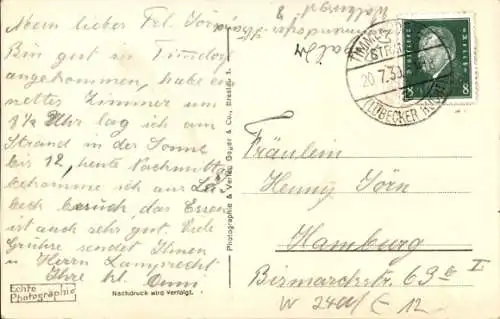 Mein lieber Frl. Jörn
Bin gut in Timdorf
angekommen, habe ein
nettes Zimmer um
Uhr lag ich am
Strand in der Sonne
bis 12, heute Nachmittag
bekomme ich aus Lü-
beck besuch, das Essen
ist auch sehr gut. Viele
Grüsse sendet Ihnen
u Herrn Lamprecht
Ihre kl.
Echte
Photographie
Nachdruck wird verfolgt.
Photographie & Verlag Geyer & Co., Breslau 1.
TIMMENDORFER
STRAND
20.7.33
(LÜBECKER BUCHT)
DEUTSCHES REICH
8 8
Fräulein
Henny Jörn
Hamburg
Bismarckstr. 69 I